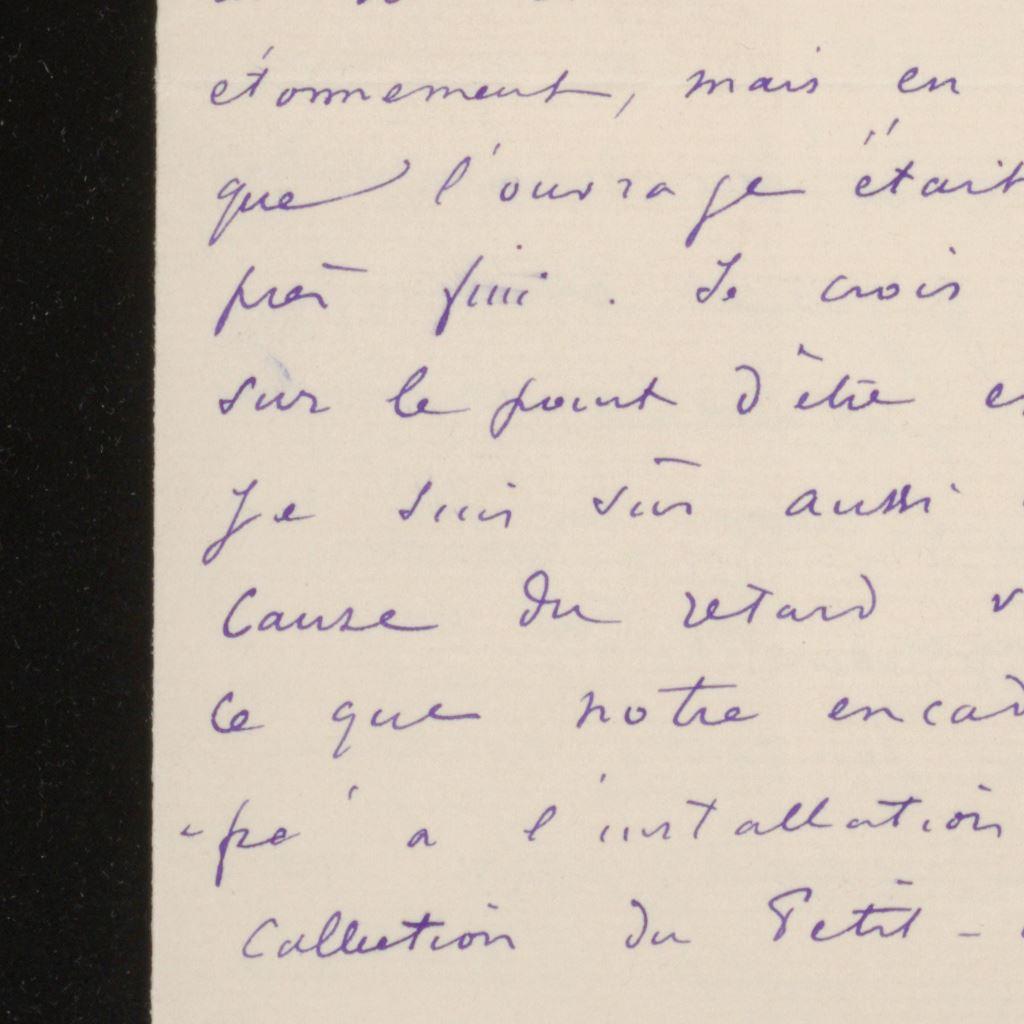 étonnement, mais en
que l'ouvrage était
près fini. Je crois
sur le point d'être
Je suis sûr aussi
cause du retard
ce que notre encad
-pé à l'installation
Collection du Petit-